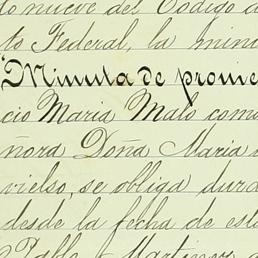 do nueve del Código d
to Federal, la minu
"Minuta de prome
cio Maria Malo como
ñora Doña Maria
vielso, se obliga dura
desde la fecha de est
Pablo Martinez